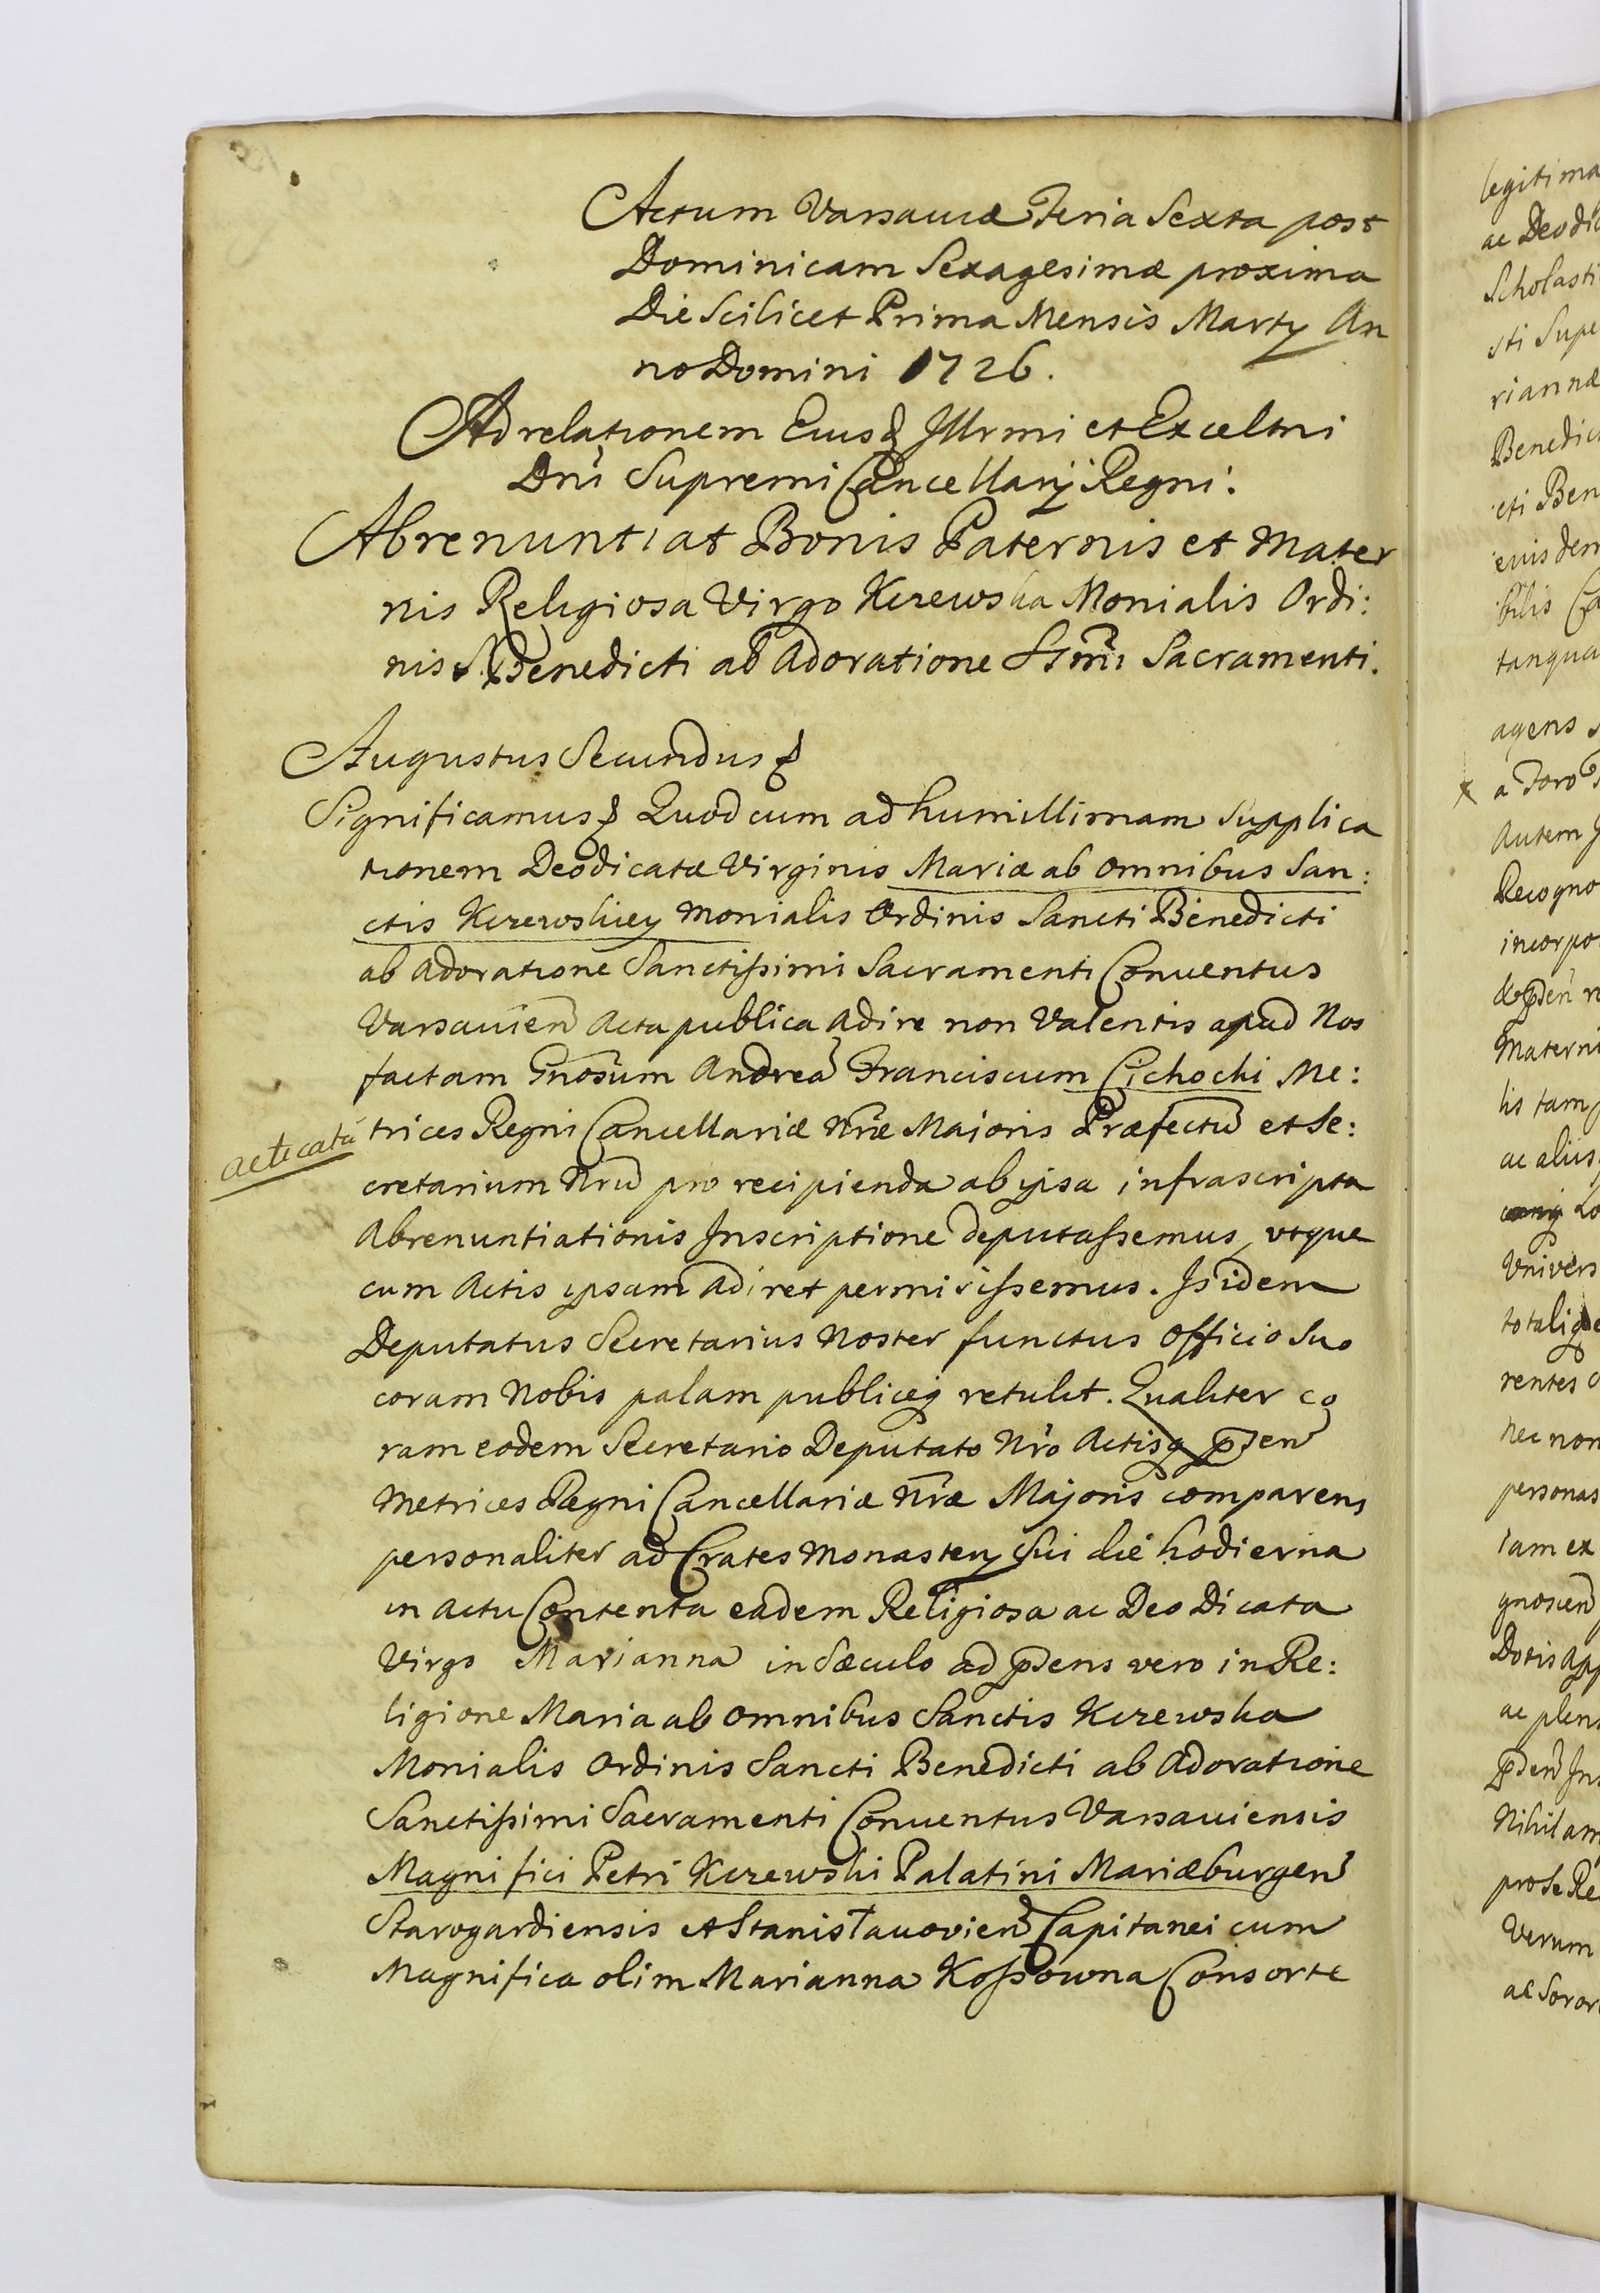 Actum Varsaviæ Feria Sexta post
Dominicam Sexagesimæ proxima
Die Scilicet Prima Mensis Martij An
no Domini 1726.
Ad relationem Eiusd Illrmi et Excelmi
Dni Supremi Cancellarij Regni.
Abrenuntiat Bonis Paternis et Mater
nis Religiosa Virgo Kczewska Monialis Ordi:
nis S. Benedicti ab Adoratione SSmi Sacramenti.
Augustus Secundus &
Significamus & Quod cum ad humillimam Supplica
tionem Deodicatæ Virginis Mariæ ab omnibus San:
ctis Kczewskiey Monialis Ordinis Sancti Benedicti
ab Adoratione Sanctissimi Sacramenti Conventus
Varsavien Acta publica adire non Valentis apud Nos
factam Gnosum Andream Franciscum Cichocki Me:
acticatū
trices Regni Cancellariæ Nræ Majoris Præfectū et Se:
cretarium Nrū pro recipienda ab ipsa infrascripta
Abrenuntiationis Inscriptione deputassemus, utque
cum Actis ipsam adiret permisissemus. Is idem
Deputatus Secretarius Noster functus Officio Suo
coram Nobis palam publiceq retulit. Qualiter co
ram eodem Secretario Deputato Nro Actisq pden
Metrices Regni Cancellariæ Nræ Majoris comparens
personaliter ad Crates Monasterij Sui die hodierna
in actu Contenta eadem Religiosa ac Deo Dicata
Virgo Marianna in Sæculo ad pdens vero in Re:
ligione Maria ab omnibus Sanctis Kczewska
Monialis Ordinis Sancti Benedicti ab Adoratione
Sanctissimi Sacramenti Conventus Varsaviensis
Magnifici Petri Kczewski Palatini Mariæburgen
Starogardiensis et Stanisławovien Capitanei cum
Magnifica olim Marianna Kossowna Consorte
legitima
ac Deodic
Scholasti
sti Supe
riannæ
Benedic
cti Ben
eiusdem
bilis Ca
tanqua
agens
a Foro
Autem
Recogno
incorpo
pden
Materni
lis tam
ac alius
Lo
Univers
totaliq
rentes
nec non
personas
iam ex
gnoscen
Dotis App
ac plen
pden In
Nihil am
pro se Re
Verum
ac Soror